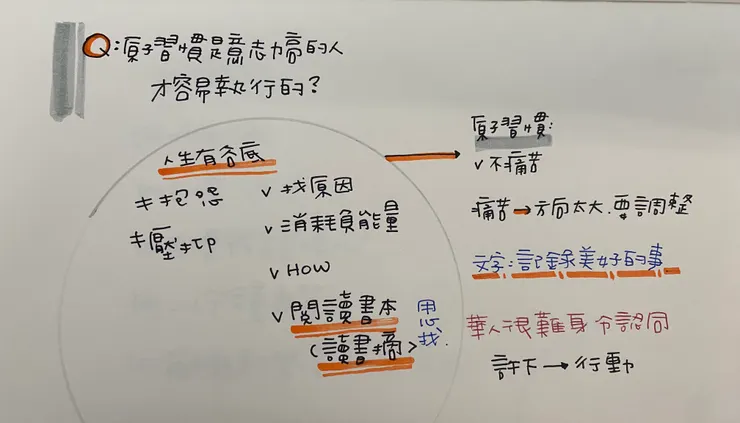 Q:原子習慣是意志力高的人
才容易執行的?
人生有谷底
抱怨
壓抑
v 找原因
v 消耗負能量
v HOW
v 閱讀書本
(讀書摘>
用心找.
原子習慣:
v 不痛苦
痛苦→方向太大.要調整
文字:記錄美好的事
華人很難身份認同
許下→行動